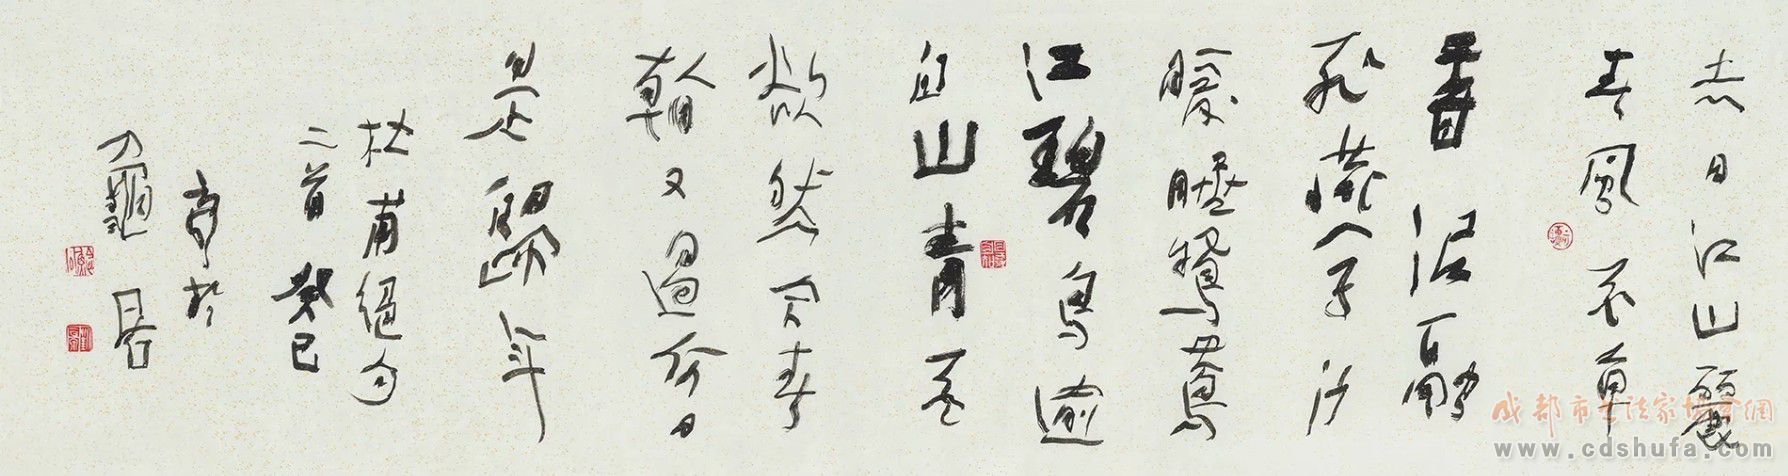 遲日江山麗
春風花草
香泥融
飛燕子沙
暖睡鴛鴦
江碧鳥逾
白山青花
欲然今春
看又過何日
是歸年
杜甫絕句
二首癸巳
於
居
成都市书法家协会網
www.cdshufa.com